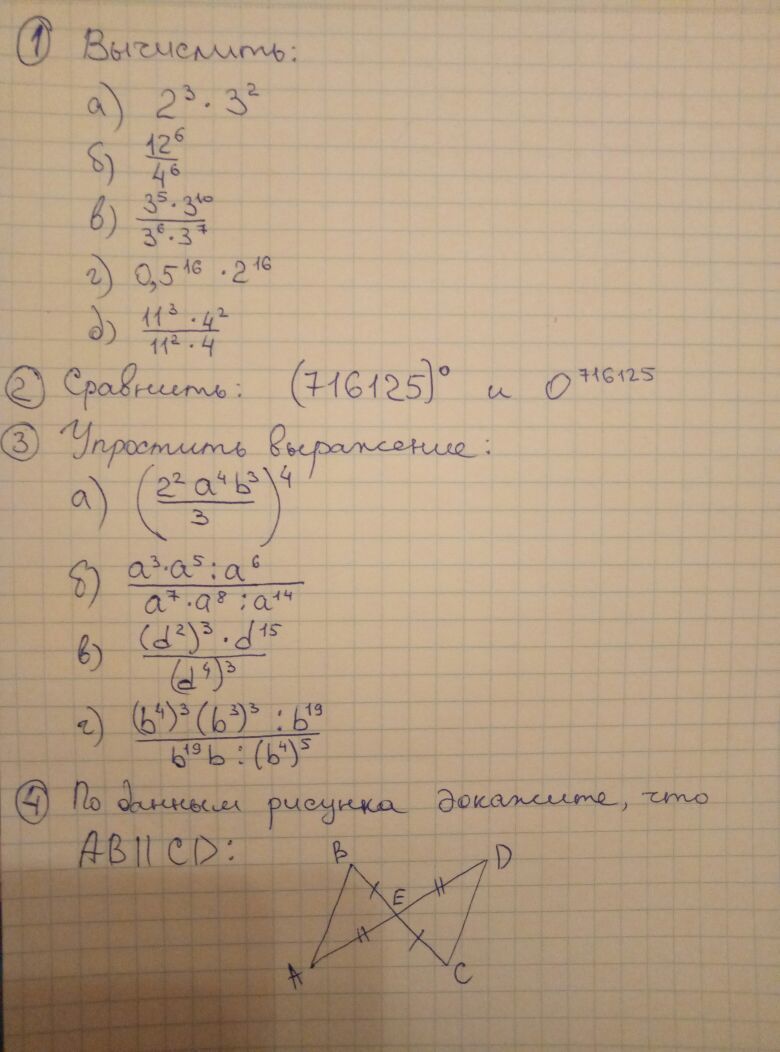 ① Вычислить:
а) 2³ · 3²
б) 12⁶/4⁶
в) 3⁵ · 3¹⁰/3⁶ · 3⁷
г) 0,5¹⁶ · 2¹⁶
д) 11³ · 4²/11² · 4
② Сравнить: (716125)⁰ и 0⁷¹⁶¹²⁵
③ Упростить выражение:
а) (2² a⁴ b³/3)⁴
б) a³ · a⁵ : a⁶/a⁷ · a⁸ : a¹⁴
в) (d²)³ · d¹⁵/(d⁴)³
г) (b⁴)³ (b³)³ : b¹⁹/b¹⁹ b : (b⁴)⁵
④ По данным рисунка докажите, что
AB || CD:
B D
E
A C